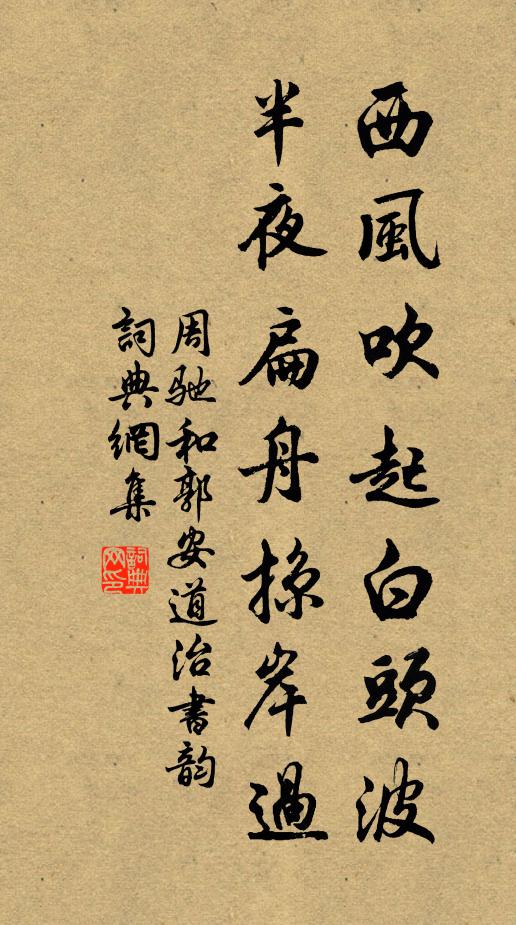 西風吹起白頭波
半夜扁舟掠岸過
周馳和郭安道治書韵
詞典網集
詞典网印